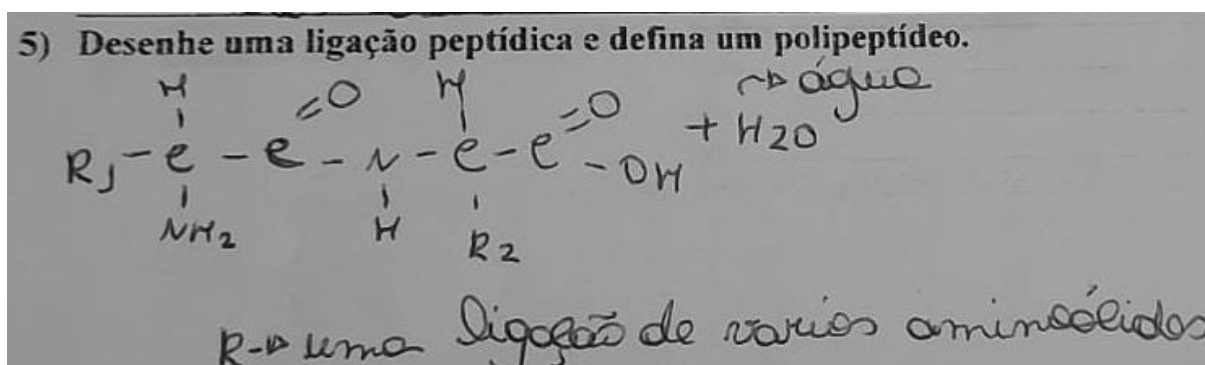 5) Desenhe uma ligação peptídica e defina um polipeptídeo.
H =O H =O → água
R1 - C - C - N - C - C - OH + H2O
NH2 H R2
R→ uma ligação de varios aminoácidos